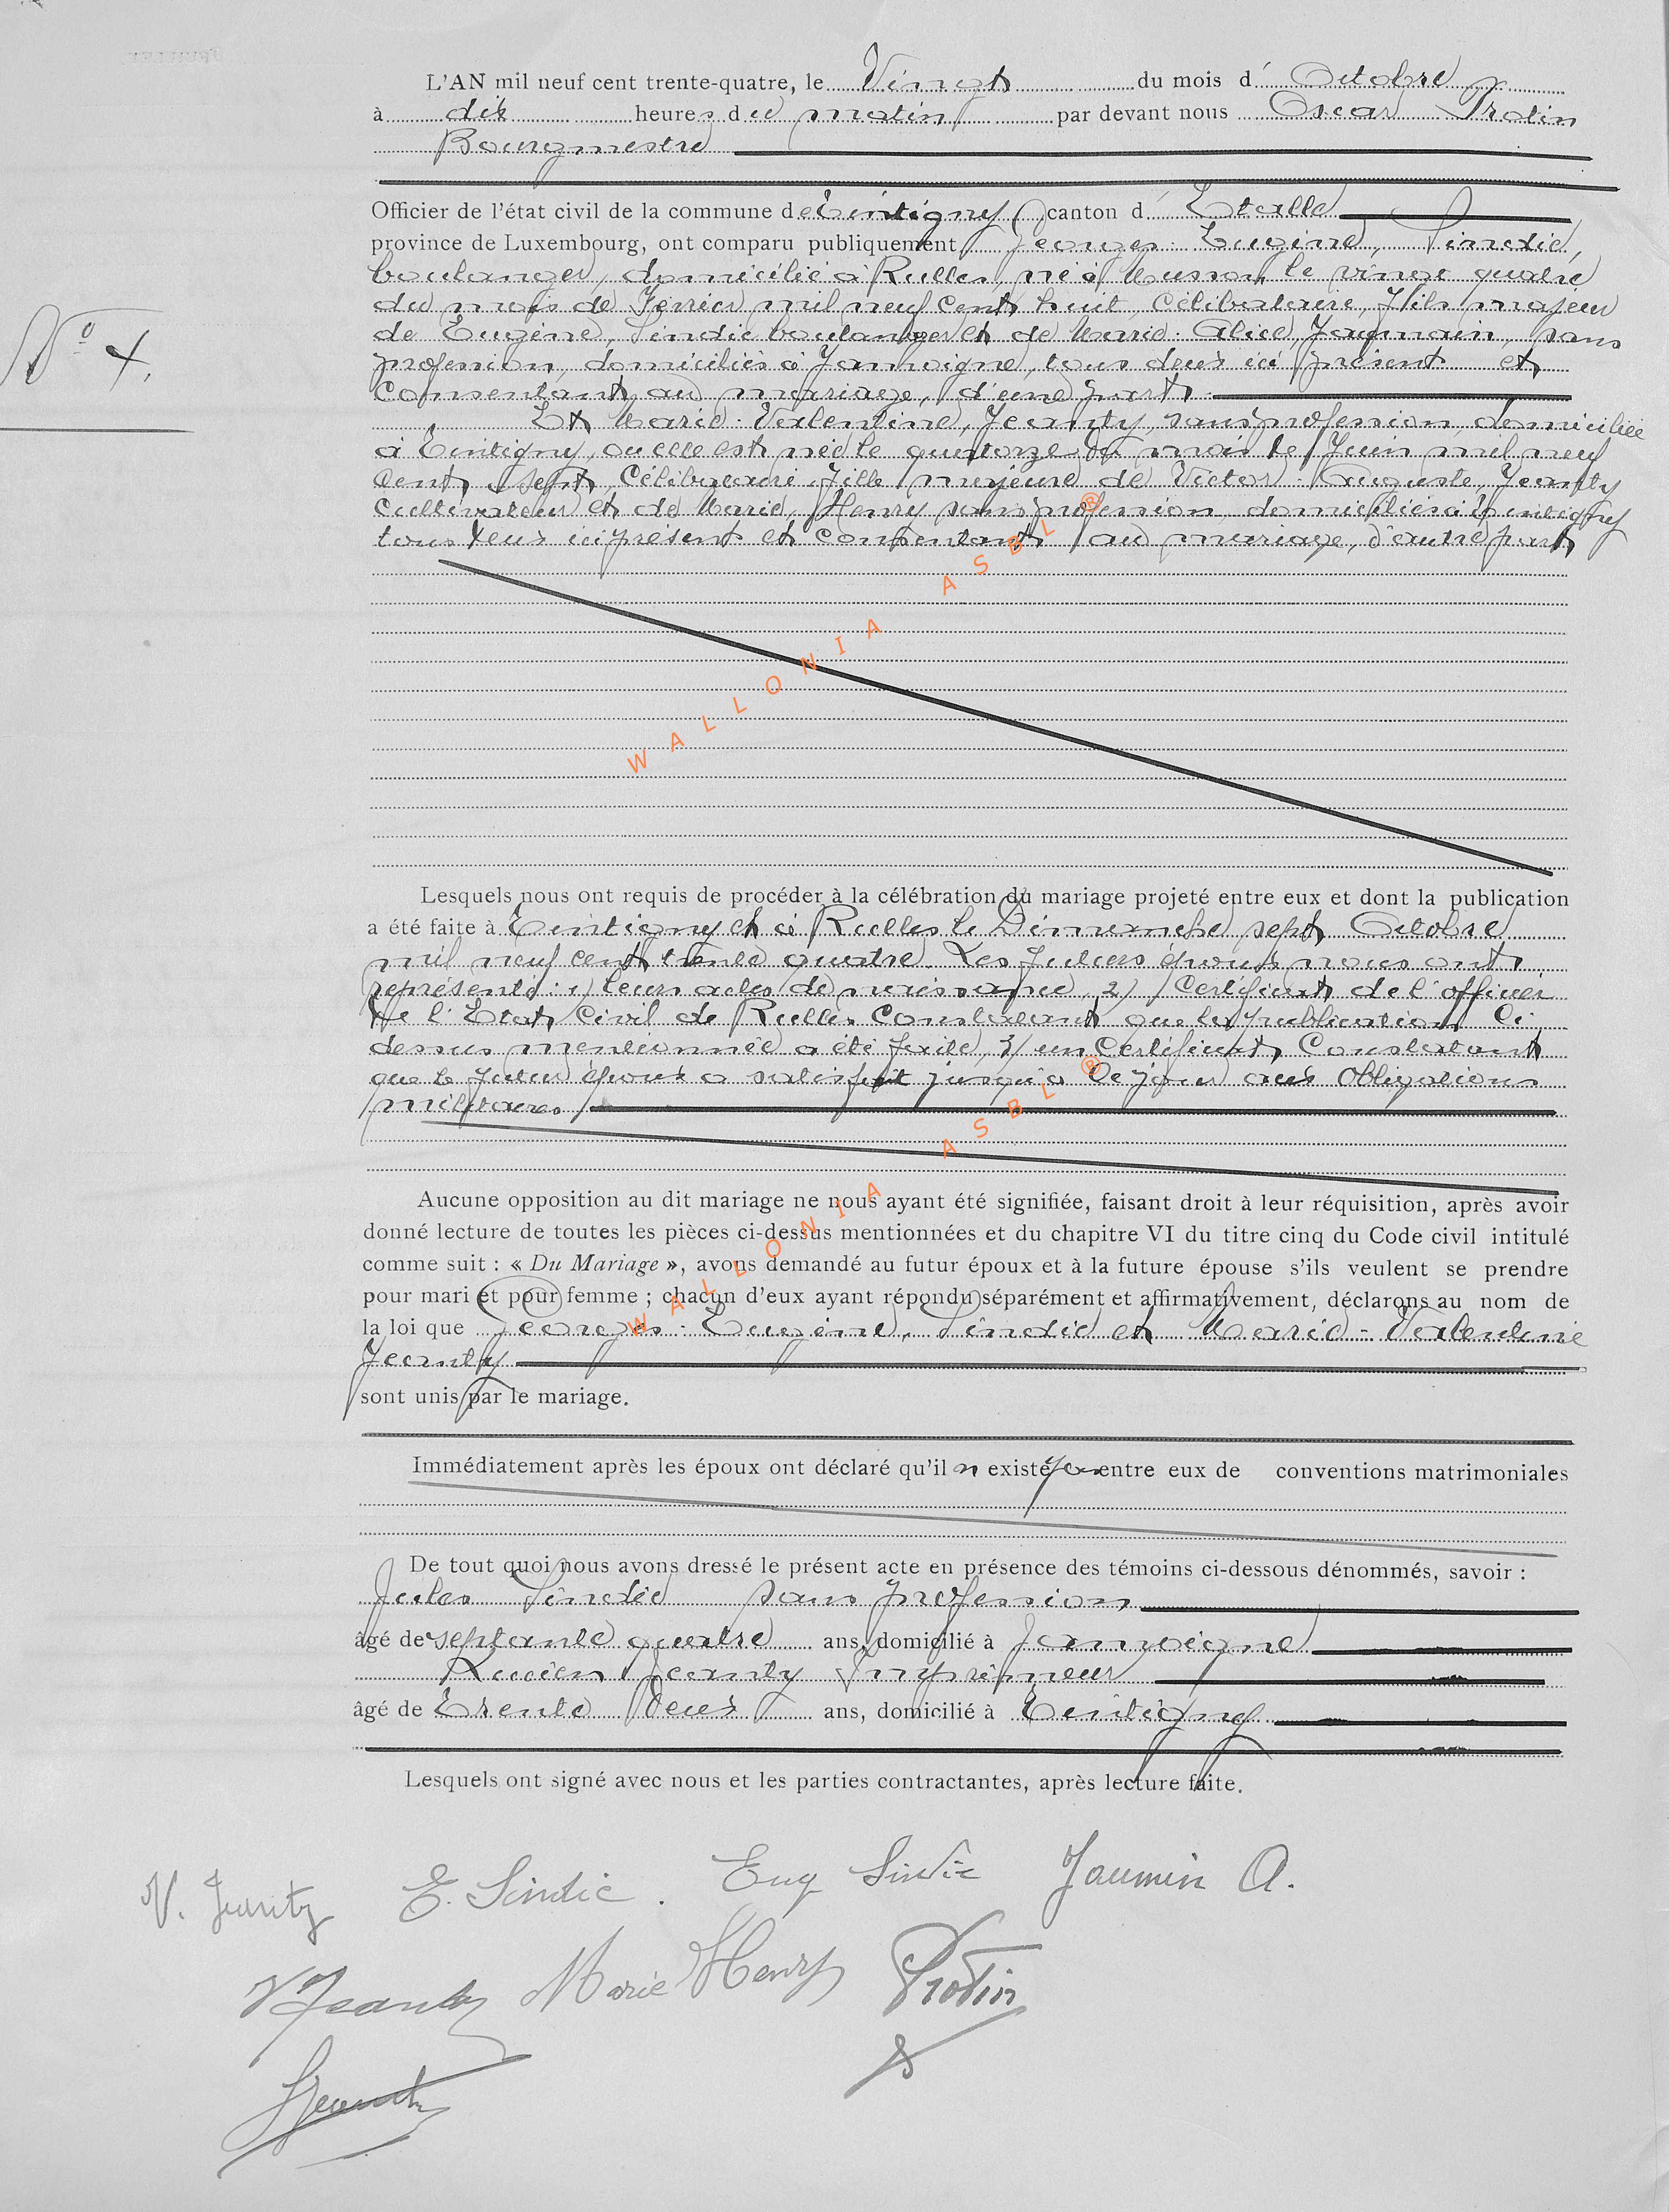 L'AN mil neuf cent trente-quatre, le Vingt du mois d' Octobre
à dix heures du matin par devant nous Oscar Protin
Bourgmestre
Officier de l'état civil de la commune de Tintigny canton d' Etalle
province de Luxembourg, ont comparu publiquement Georges-Eugène, Sindic,
boulanger, domicilié à Rulles, né à Musson le vingt quatre
du mois de Février mil neuf cent huit, Célibataire, fils majeur
de Eugène, Sindic boulanger et de Marie-Alice, Jaumain, sans
profession, domiciliés à Jamoigne, tous deux ici présent et
consentant au mariage, d'une part.
N° 4.
Et Marie-Valentine, Jeanty, sans profession domiciliée
à Tintigny, ou elle est née le quatorze du mois de Juin mil neuf
cent sept, Célibataire fille majeure de Victor-Auguste, Jeanty
Cultivateur et de Marie, Henry sans profession domiciliés à Tintigny
tous deux ici présent et consentant au mariage, d'autre part
Lesquels nous ont requis de procéder à la célébration du mariage projeté entre eux et dont la publication
a été faite à Tintigny et à Rulles le Dimanche sept Octobre
mil neuf cent trente quatre. Les futurs époux nous ont
représenté : 1) leurs actes de naissance, 2) Certificat de l'officier
de l'Etat Civil de Rulles constatant que la publication ci-
dessus mentionnée a été faite, 3) un Certificat constatant
que le futur époux a satisfait jusqu'à ce jour aux obligations
militaires
Aucune opposition au dit mariage ne nous ayant été signifiée, faisant droit à leur réquisition, après avoir
donné lecture de toutes les pièces ci-dessus mentionnées et du chapitre VI du titre cinq du Code civil intitulé
comme suit : « Du Mariage », avons demandé au futur époux et à la future épouse s'ils veulent se prendre
pour mari et pour femme ; chacun d'eux ayant répondu séparément et affirmativement, déclarons au nom de
la loi que Georges-Eugène, Sindic et Marie-Valentine
Jeanty
sont unis par le mariage.
Immédiatement après les époux ont déclaré qu'il n existe pas entre eux de conventions matrimoniales
De tout quoi nous avons dressé le présent acte en présence des témoins ci-dessous dénommés, savoir :
Jules Sindic sans profession
âgé de septante quatre ans, domicilié à Jamoigne
Lucien Jeanty Imprimeur
âgé de Trente deux ans, domicilié à Tintigny
Lesquels ont signé avec nous et les parties contractantes, après lecture faite.
V. Jeanty E. Sindic. Eug Sindic Jaumin A.
V Jeanty Marie Henry Protin
Jeanty
WALLONIA ASBL ®
WALLONIA ASBL ®